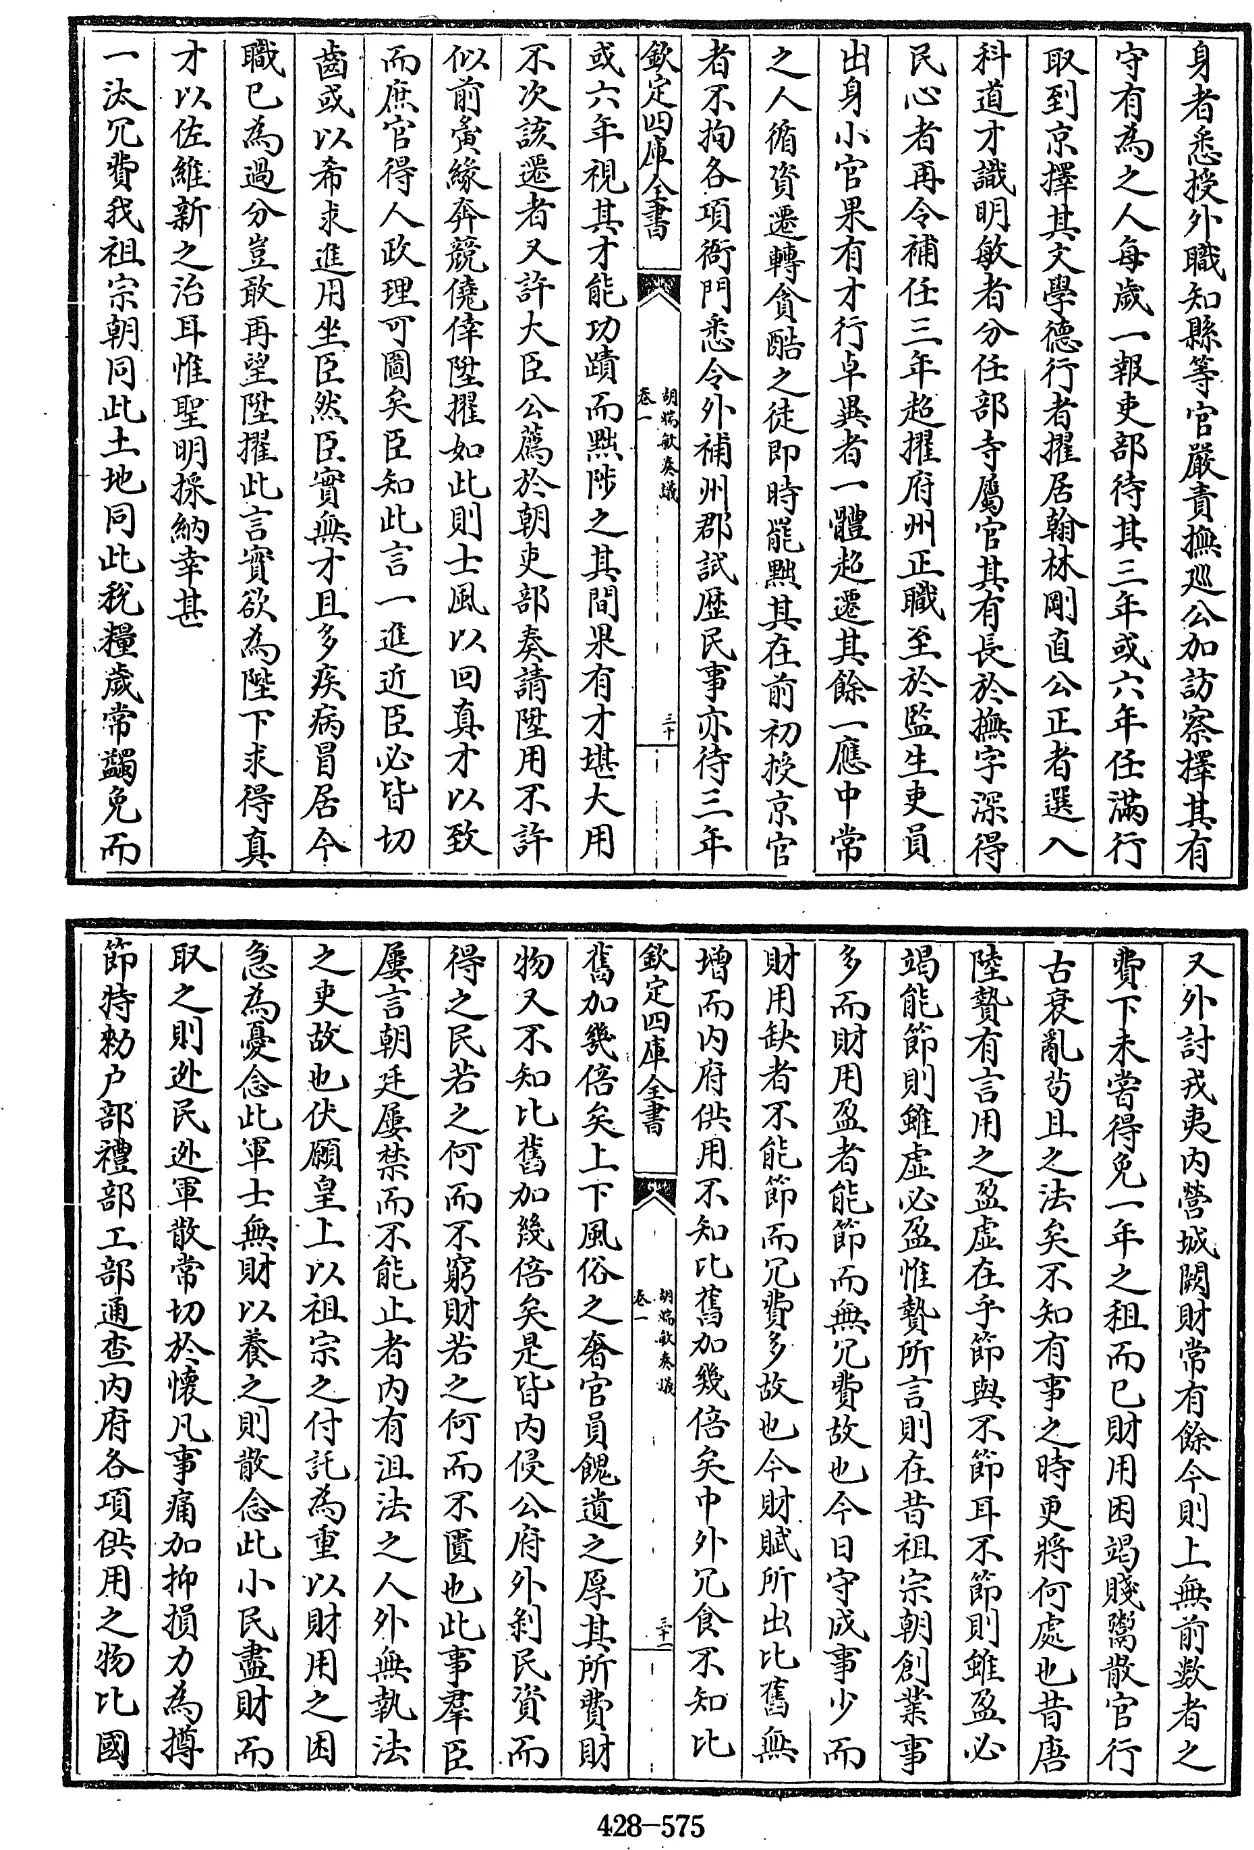 身者悉授外職知縣等官嚴責撫廵公加訪察擇其有
守有為之人每歲一報吏部待其三年或六年任滿行
取到京擇其文學德行者擢居翰林剛直公正者選入
科道才識明敏者分任部寺屬官其有長於撫字深得
民心者再令補任三年超擢府州正職至於監生吏員
出身小官果有才行卓異者一體超遷其餘一應中常
之人循資遷轉貪酷之徒即時罷黜其在前初授京官
者不拘各項衙門悉令外補州郡試歴民事亦待三年
欽定四庫全書
胡端敏奏議
卷一
三十
或六年視其才能功蹟而黜陟之其間果有才堪大用
不次該遷者又許大臣公薦於朝吏部奏請陞用不許
似前夤緣奔競僥倖陞擢如此則士風以回真才以致
而庶官得人政理可圖矣臣知此言一進近臣必皆切
齒或以希求進用坐臣然臣實無才且多疾病冒居今
職已為過分豈敢再望陞擢此言實欲為陛下求得真
才以佐維新之治耳惟聖明採納幸甚
一汰冗費我祖宗朝同此土地同此稅糧歲常蠲免而
又外討戎夷内營城闕財常有餘今則上無前数者之
費下未嘗得免一年之租而已財用困竭賤鬻散官行
古衰亂苟且之法矣不知有事之時更將何處也昔唐
陸贄有言用之盈虚在乎節與不節耳不節則雖盈必
竭能節則雖虚必盈惟贄所言則在昔祖宗朝創業事
多而財用盈者能節而無冗費故也今日守成事少而
財用缺者不能節而冗費多故也今財賦所出比舊無
增而内府供用不知比舊加幾倍矣中外冗食不知比
欽定四庫全書
胡端敏奏議
卷一
三十一
舊加幾倍矣上下風俗之奢官員餽遺之厚其所費財
物又不知比舊加幾倍矣是皆内侵公府外剥民資而
得之民若之何而不窮財若之何而不匱也此事羣臣
屢言朝廷屢禁而不能止者内有沮法之人外無執法
之吏故也伏願皇上以祖宗之付託為重以財用之困
急為憂念此軍士無財以養之則散念此小民盡財而
取之則逃民逃軍散常切於懷凡事痛加抑損力為撙
節特勑户部禮部工部通查内府各項供用之物比國
428-575